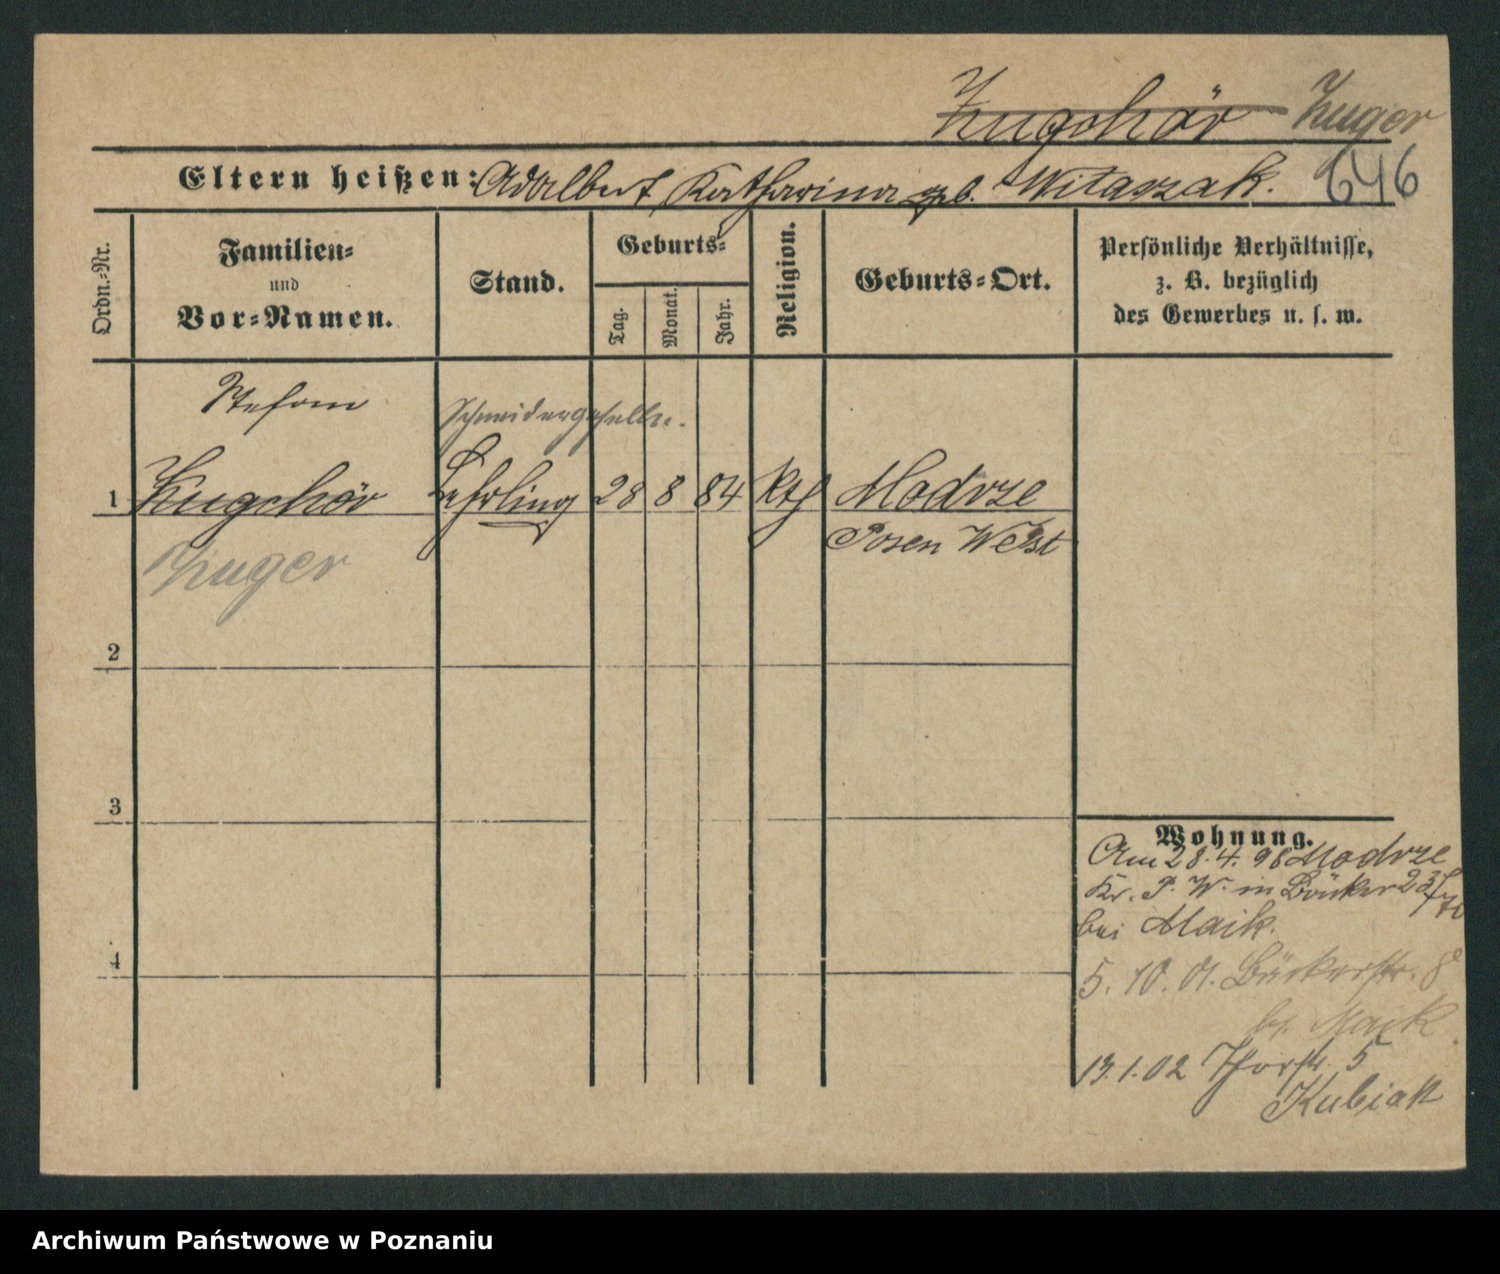 Zugehör Zuger
Eltern heißen: Adalbert, Katharina geb. Witaszak. 646
Ordn.-Nr.
Familien-
und
Vor-Namen.
Stand.
Geburts-
Tag.
Monat.
Jahr.
Religion.
Geburts-Ort.
Persönliche Verhältnisse,
z. B. bezüglich
des Gewerbes u. s. w.
Stefan Schneidergeselle.
1 Zugehör Lehrling 28 8 84 kth Modrze
Posen West
Zuger
2
3
4
Wohnung.
Am 28.4.98 Modrze
Kr. P. W. in Bäcker 23
bei Maik.
5.10.01. Bäckerstr. 8
b. Maik
13.1.02 Thorstr. 5
Kubiak
Archiwum Państwowe w Poznaniu